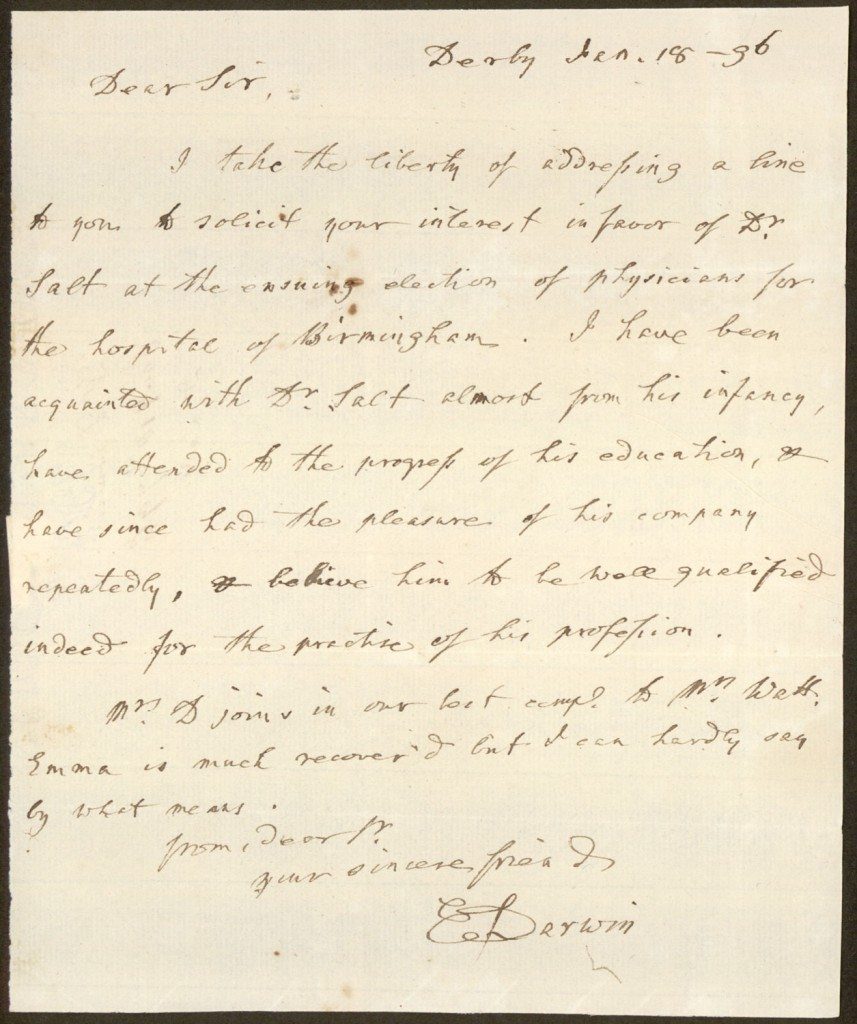 Derby Jan. 18 - 96
Dear Sir,
I take the liberty of addressing a line
to you to solicit your interest in favor of Dr.
Salt at the ensuing election of physicians for
the hospital of Birmingham. I have been
acquainted with Dr. Salt almost from his infancy,
have attended to the progress of his education, &
have since had the pleasure of his company
repeatedly, & believe him to be well qualified
indeed for the practise of his profession.
Mrs. D joins in our best compts. to Mrs. Watt.
Emma is much recover'd but I can hardly say
by what means.
from, dear Sr.
your sincere friend
E Darwin